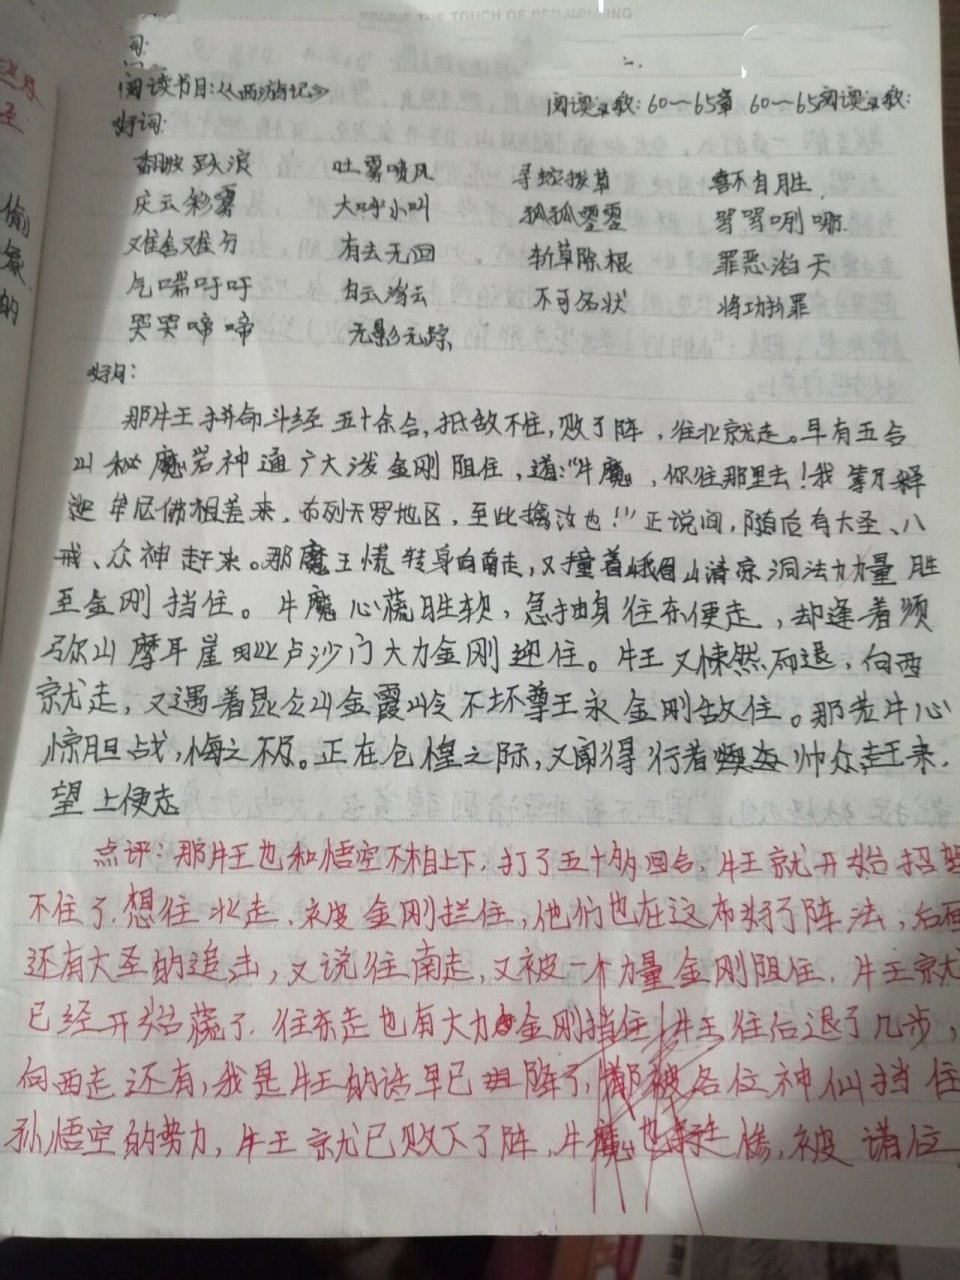 阅读书目:《西游记》 阅读章数:60～65章 60～65阅读章数:
好词:
翻波跃浪 吐雾喷风 寻蛇拨草 喜不自胜
庆云彩雾 大呼小叫 孤孤零零 骂骂咧哪
难舍难分 有去无回 斩草除根 罪恶滔天
气喘吁吁 不可名状 将功折罪
哭哭啼啼 无影无踪
好句:
那牛王拼命斗经五十余合,抵敌不住,败了阵,往北就走。早有五台
山秘魔岩神通广大泼金刚阻住,道:“牛魔,你往那里去!我等乃释
迦牟尼佛祖差来,布列天罗地区,至此擒汝也!”正说间,随后有大圣、八
戒、众神赶来。那魔王慌转身向南走,又撞着峨眉山清凉洞法力力量胜
至金刚挡住。牛魔心慌胜软,急抽身往东便走,却逢着须
弥山摩耳崖毗卢沙门大力金刚迎住。牛王又悚然而退,向西
就走,又遇着昆仑山金霞岭不坏尊王永金刚敌住。那老牛心
惊胆战,悔之不及。正在仓惶之际,又闻得行者帅众赶来,
望上便走
点评:那牛王也和悟空不相上下,打了五十多回合,牛王就开始招架
不住了,想往北走,被金刚拦住,他们也在这布好了阵法,后面
还有大圣的追击,又说往南走,又被一个力量金刚阻住,牛王就
已经开始慌了,往东走也有大力金刚挡住,牛王往后退了几步,
向西走还有,我是牛王的话早已降了,都被各位神仙挡住
孙悟空的势力,牛王就已败下了阵,牛魔也惨,被诸位